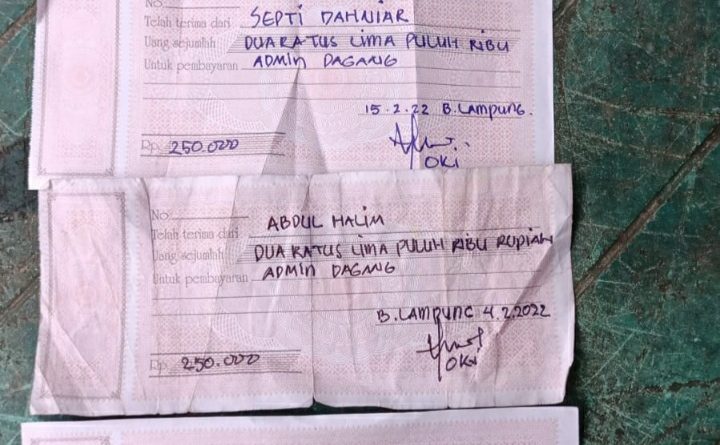 No.
Telah terima dari SEPTI DAHNIAR
Uang sejumlah DUA RATUS LIMA PULUH RIBU
Untuk pembayaran ADMIN DAGANG
15.2.22 B.LAMPUNG.
Rp. 250.000
OKI
No.
Telah terima dari ABDUL HALIM
Uang sejumlah DUA RATUS LIMA PULUH RIBU RUPIAH
Untuk pembayaran ADMIN DAGANG
B.LAMPUNG 4.2.2022
Rp. 250.000
OKI